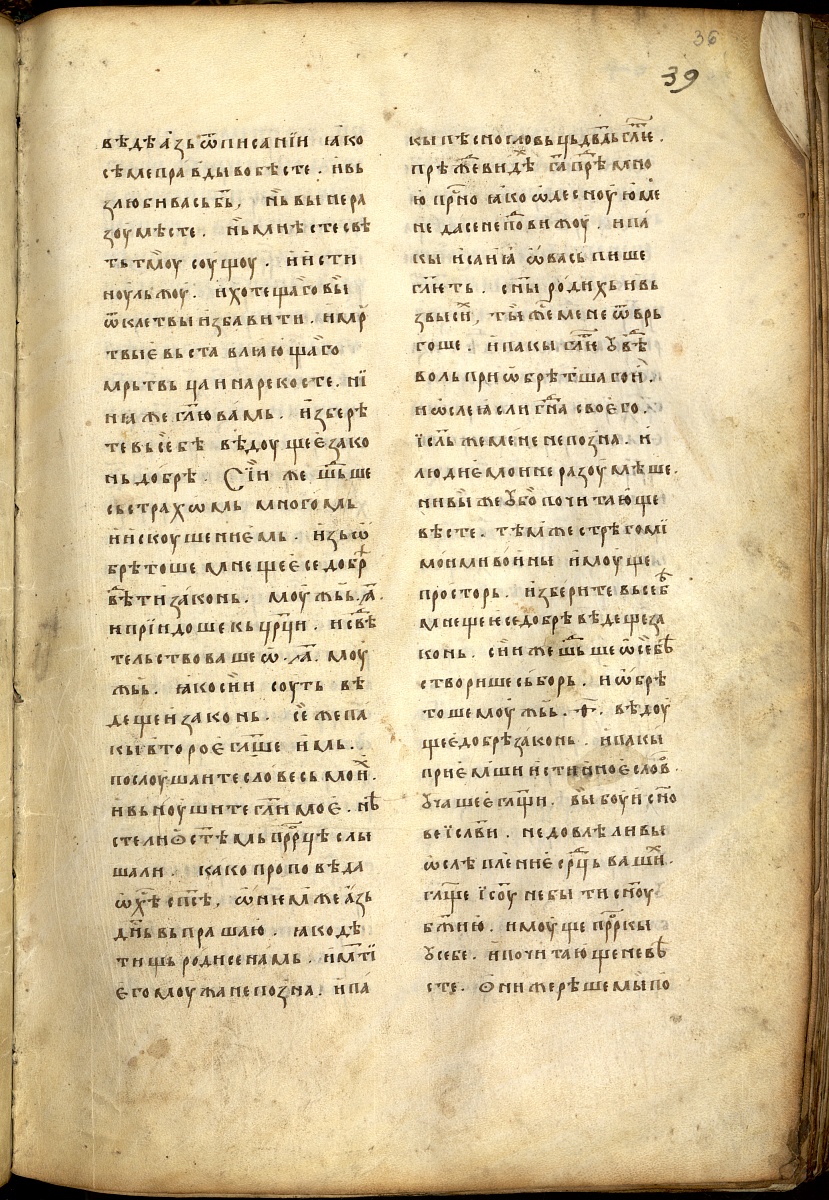 36
39
вѣдѣ а҆зь ѿ писанїи ꙗко
сѣме правды во ѥсте . и вь
злюби вась бь҃ , нь вы не ра
зоумѣсте . нь мнѣсте свѣ
ть тмоу соущоу . и исти
ноу льжоу . и хотещаго вы
ѿ клетвы избавити . и мр
твыѥ вьставлꙗющаго
мрьтвьца нарекосте . ни
нꙗ же гл҃ю вамь . избере
те вь себѣ вѣдоущеѥ зако
нь добрѣ . Сїи же шьше
сь страхѡмь многомь
и искоушениѥмь . изьѡ
брѣтоше мнещеѥ се добрѣ
вѣти законь . моужьь . л҃ .
и прїидоше кь цр҃ци . и свѣ
тельствоваше ѡ . л҃ . моу
жьь . ꙗко сии соуть вѣ
дещеи законь . се же па
кы второѥ гл҃аше имь .
послоушаите словесь мои .
и вьноушите гл҃и моѥ . нѣ
сте ли ѡ стѣмь пррцѣ слы
шали . како проповѣда
ѡ хѣ спсѣ , ѡ ним же азь
днь вьпрашаю . ꙗко дѣ
тищь роди се намь . и мти
ѥго моужа не позна . и па
кы пѣснословьць двдь гл҃ѥ .
прѣжѣ видѣ га҃ прѣ мно
ю прно ꙗко ѡ деснꙋю ме
не да се не повижоу . и па
кы исаиꙗ ѡ вась пише
гл҃ѥть . сны родихь и вь
звыси , ты же мене ѿврь
гоше . и пакы гл҃и увѣ
воль приѡбрѣтшаго и .
и ѡсле ꙗсли гна своѥго .
їсль же мене не позна . и
людиѥ мои не разоумѣше .
ни вы же убо почитающе
вѣсте . тѣмже стрегоми
моими воины имоуще
просторь . изберите вь себѣ
мнещеи се добрѣ вѣдеще за
конь . сии же шьше ѡ себѣ
створише сьборь . и ѡбрѣ
тоше моужьь . г҃ . вѣдоу
щеѥ добрѣ законь . и пакы
приѥмши истинноѥ слов
учаше ѥ гл҃щи . вы боуи сно
ве їсл҃ви . не довлѣ ли вы
ѡслѣплениѥ срць ваши .
гл҃ще їсоу не быти сноу
бжию . имоуще прркы
у себе . и почитающе не вѣ
сте . ѡни же рѣше мы по